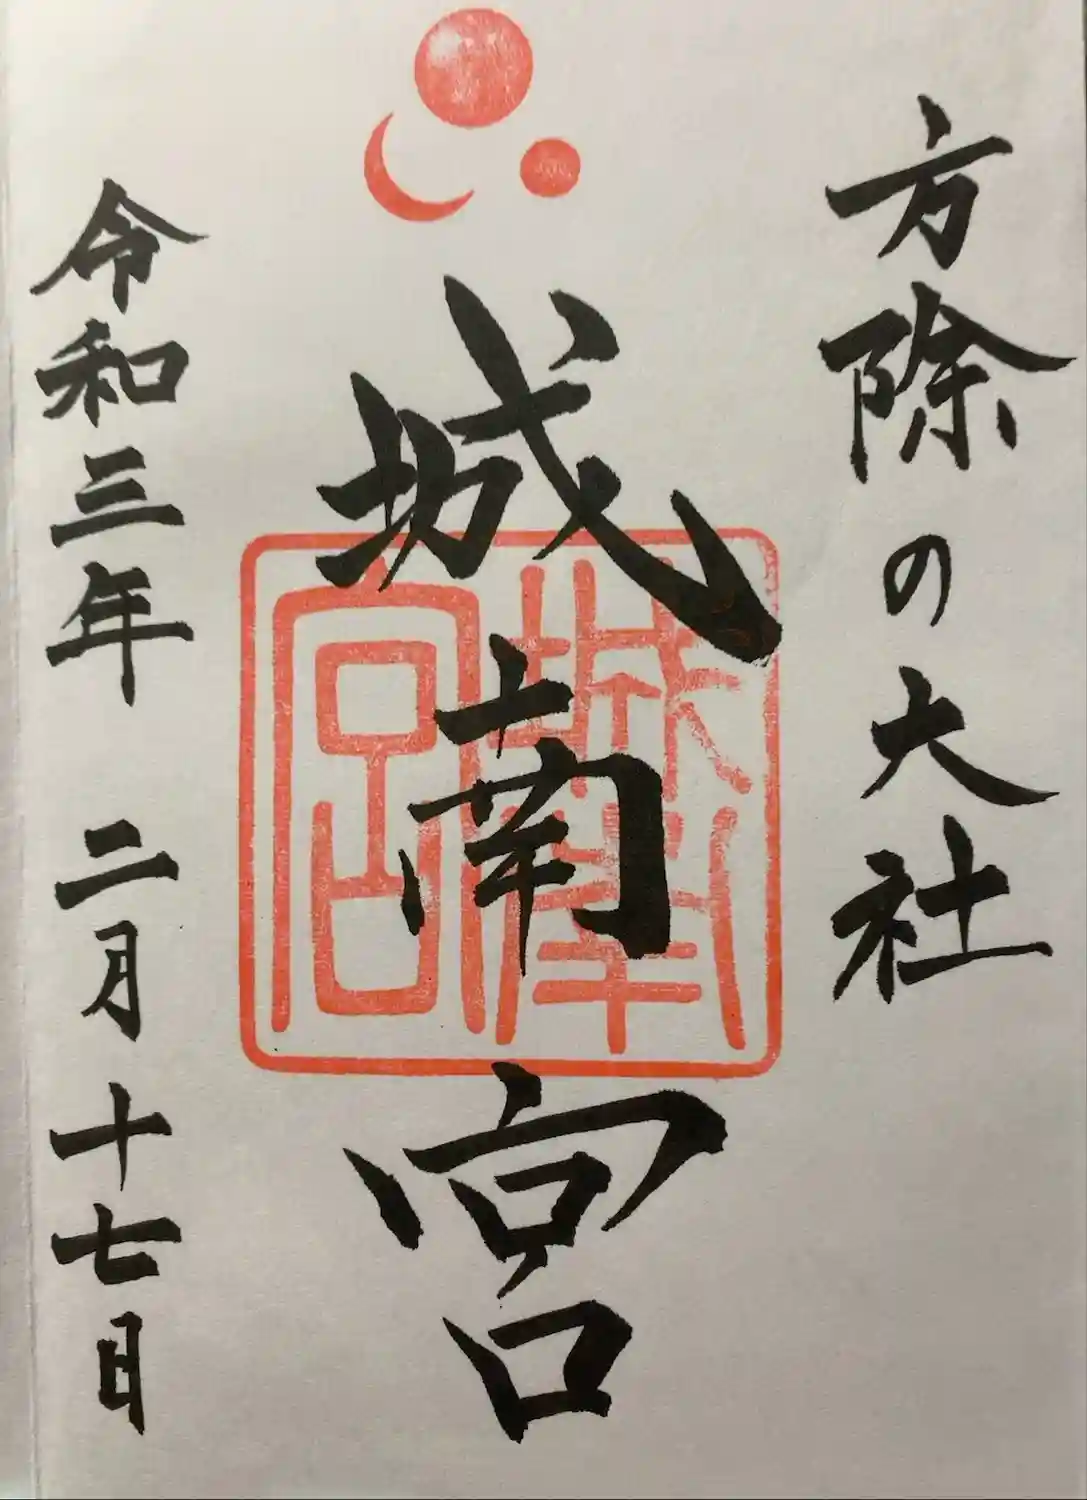 方除の大社
城南宮
城南宮
令和三年 二月 十七日